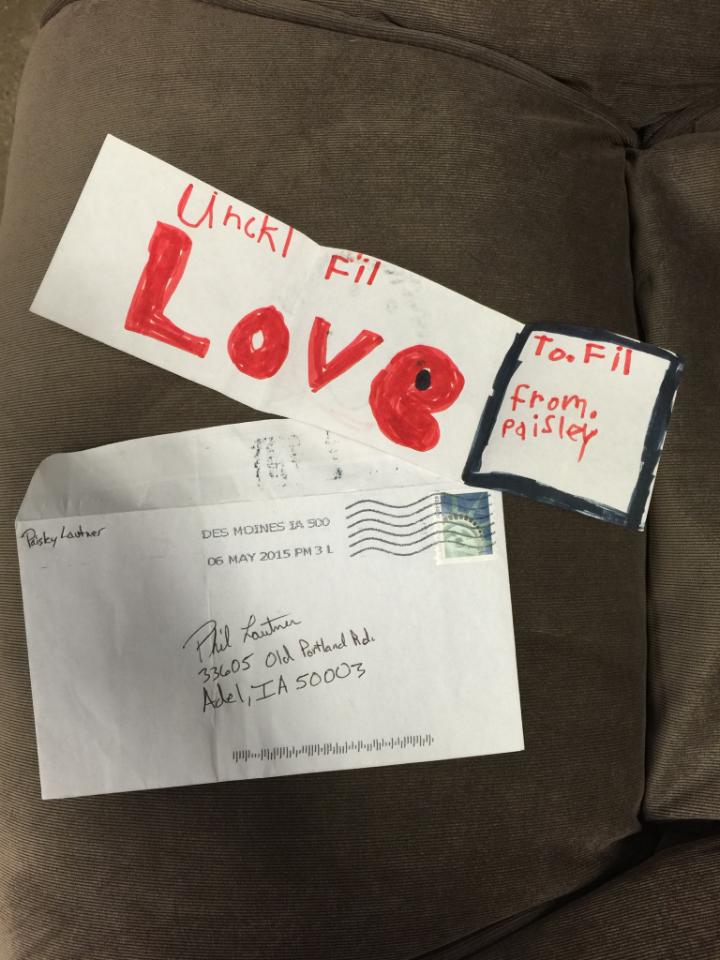 Unckl Fil
LOVe
To. Fil
From.
Paisley
Paisley Lautner
DES MOINES IA 500
06 MAY 2015 PM 3 L
Phil Lautner
33605 Old Portland Rd.
Adel, IA 50003